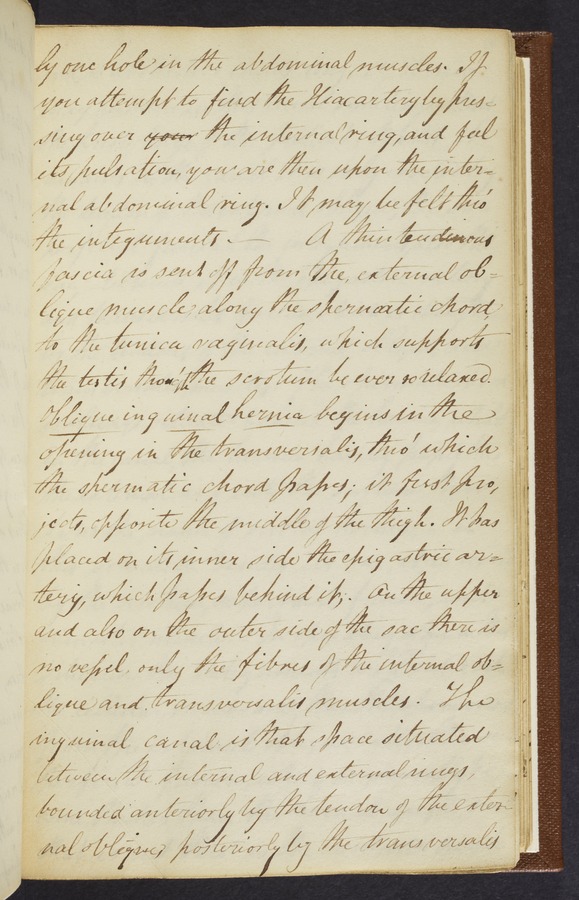 ly one hole in the abdominal muscles. If
you attempt to find the Iliac artery by pres=
sing over your the internal ring, and feel
its pulsation, you are then upon the inter=
nal abdominal ring. It may be felt thro'
the integuments. — A thin tendinous
fascia is sent off from the, external ob=
lique muscle along the spermatic chord,
to the tunica vaginalis, which supports
the testis though the scrotum be ever so relaxed.
Oblique inguinal hernia begins in the
opening in the transversalis, thro' which
the spermatic chord passes; it first pro,
jects, opposite the middle of the thigh. It has
placed on its inner side the epigastric ar=
tery, which passes behind it;. On the upper
and also on the outer side of the sac there is
no vessel only the fibres of the internal ob=
lique and transversalis muscles. The
inguinal canal is that space situated
between the internal and external rings,
bounded anteriorly by the tendon of the exter
nal oblique, posteriorly by the transversalis